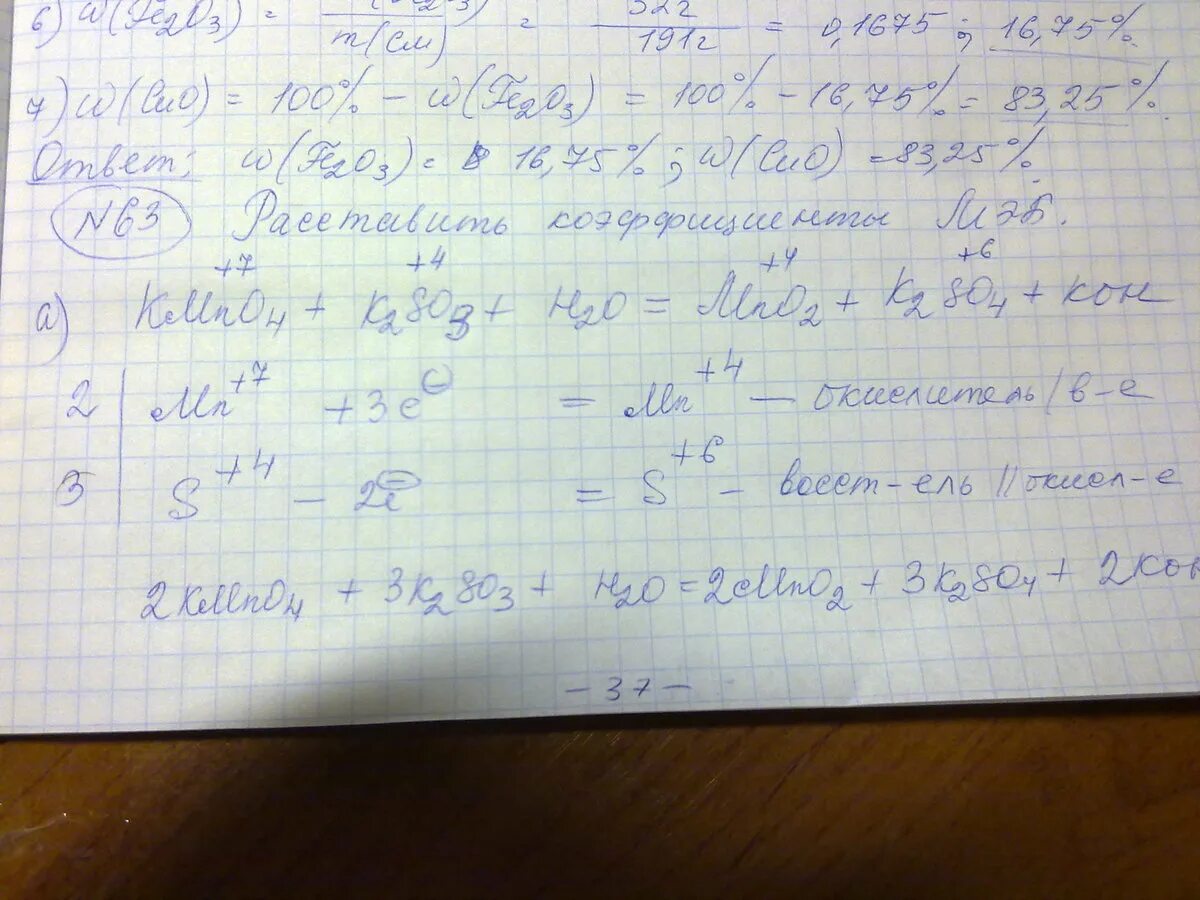 6) ω(Fe₂O₃) = m(Fe₂O₃) / m(см) = 32г / 191г = 0,1675 ; 16,75%
7) ω(CuO) = 100% - ω(Fe₂O₃) = 100% - 16,75% = 83,25%.
Ответ: ω(Fe₂O₃) = 16,75% ; ω(CuO) = 83,25%.
N63 Расставить коэффициенты МЭБ.
+7 +4 +4 +6
а) KMnO₄ + K₂SO₃ + H₂O = MnO₂ + K₂SO₄ + KOH
2 | Mn⁺⁷ + 3e⁻ = Mn⁺⁴ - окислитель/в-е
3 | S⁺⁴ - 2e⁻ = S⁺⁶ - восст-ель // окисл-е
2KMnO₄ + 3K₂SO₃ + H₂O = 2MnO₂ + 3K₂SO₄ + 2KOH
- 37 -